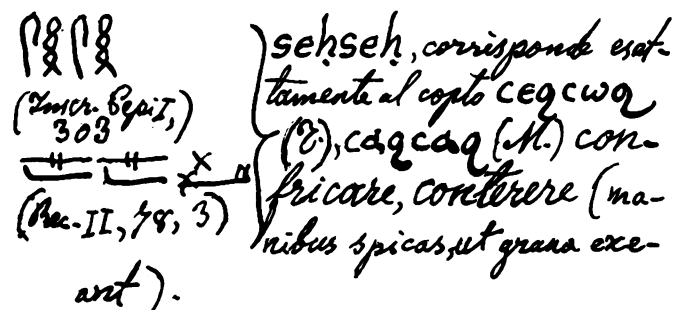 𓋴𓎛𓋴𓎛
(Inscr. Pepi I,
303
(Rec. II, 78, 3)
seḥseḥ, corrisponde esat-
tamente al copto ⲥⲉϩⲥⲱϩ
(T.), ⲥⲁϩⲥⲁϩ (M.) con-
fricare, conterere (ma-
nibus spicas, ut grana exe-
ant).